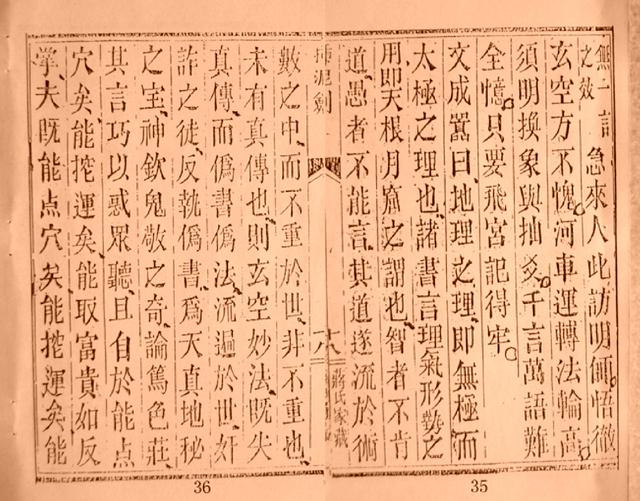 無一言急來人此訪明師悟徹
之效
玄空方不愧河車運轉法輪高
須明換象與抽爻千言萬語難
全憶只要飛宮記得牢
文成嵩曰地理之理即無極而
太極之理也諸書言理氣形勢之
用即天根月窟之謂也智者不肯
道愚者不能言其道遂流於術
插泥劍
十八
蔣氏家藏
數之中而不重於世非不重也
未有真傳也則玄空妙法既失
真傳而僞書僞法流遍於世奸
詐之徒反執僞書爲天真地秘
之宝神欽鬼敬之奇論篤色莊
其言巧以惑眾聽且自於能点
穴矣能挖運矣能取富貴如反
掌夫既能点穴矣能挖運矣能
36
35